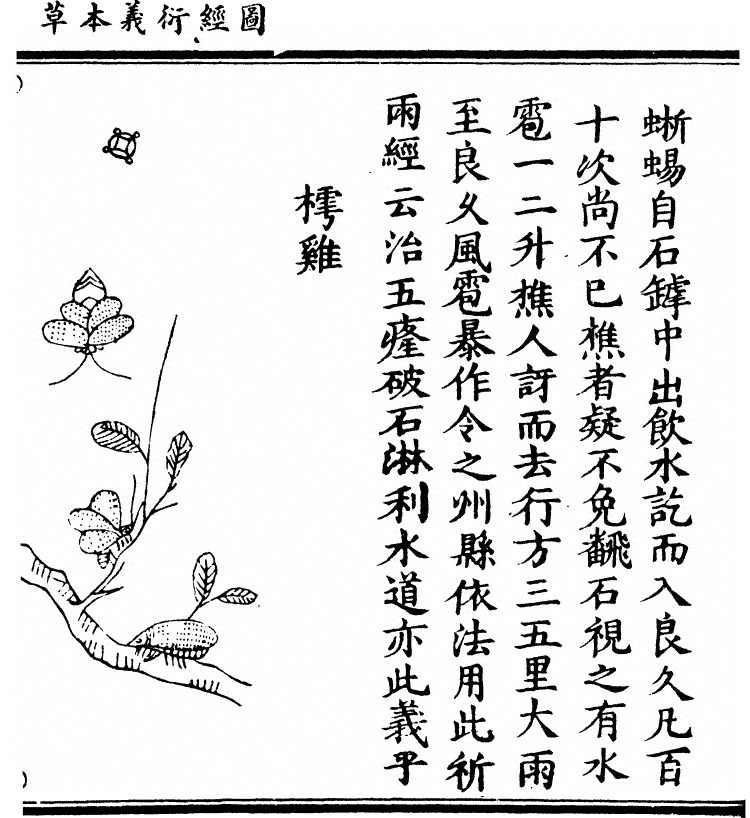 圖經衍義本草
蜥蜴自石罅中出飲水訖而入良久凡百
十次尚不已樵者疑不免飜石視之有水
雹一二升樵人訝而去行方三五里大雨
至良久風雹暴作令之州縣依法用此祈
雨經云治五癃破石淋利水道亦此義乎
樗雞